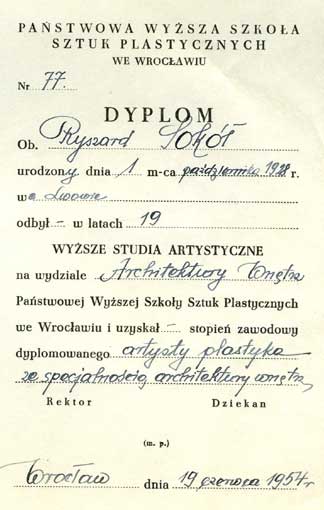 PAŃSTWOWA WYŻSZA SZKOŁA
SZTUK PLASTYCZNYCH
WE WROCŁAWIU
Nr 77.
DYPLOM
Ob. Ryszard Sokół
urodzony dnia 1 m-ca października 1928 r.
we Lwowie
odbył – w latach 19
WYŻSZE STUDIA ARTYSTYCZNE
na wydziale Architektury Wnętrz
Państwowej Wyższej Szkoły Sztuk Plastycznych
we Wrocławiu i uzyskał – stopień zawodowy
dyplomowanego artysty plastyka
ze specjalnością architektury wnętrz
Rektor Dziekan
(m. p.)
Wrocław dnia 19 czerwca 1954 r